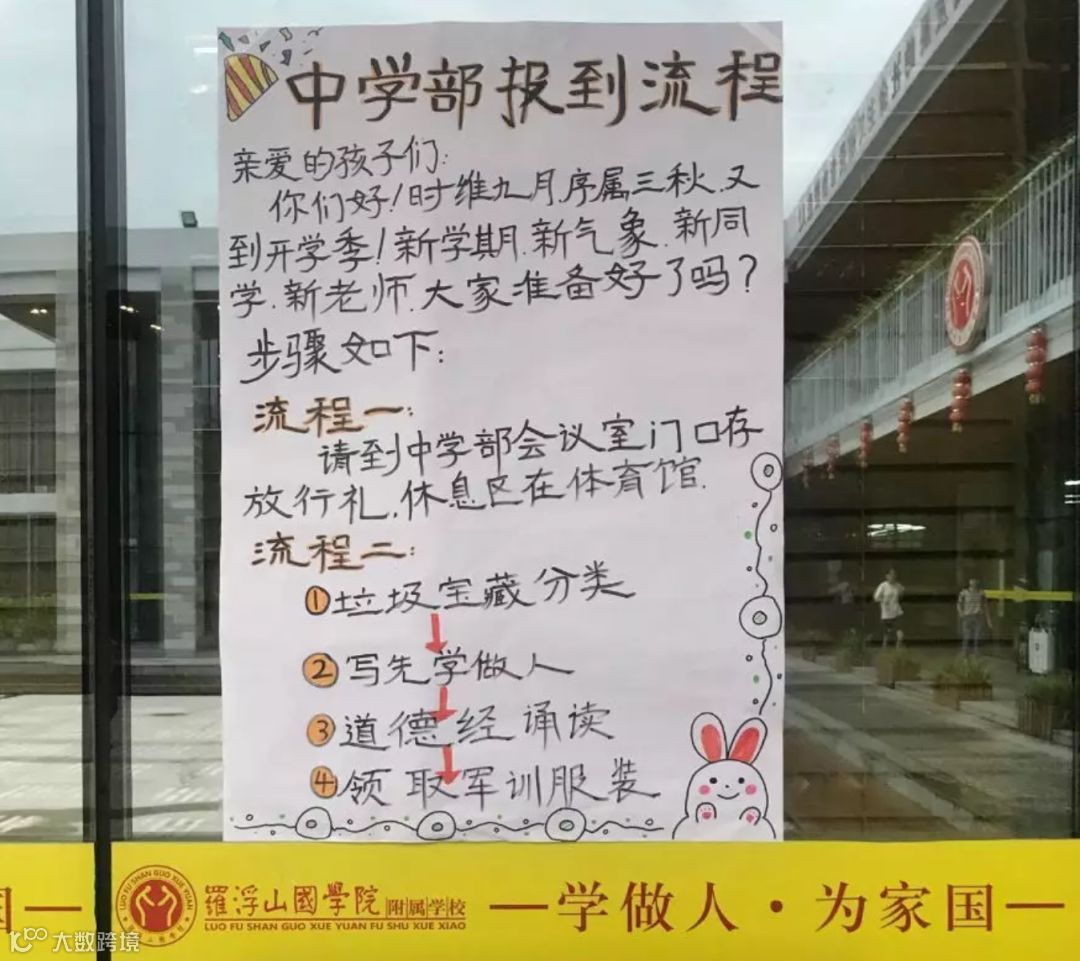 中学部报到流程
亲爱的孩子们:
你们好!时维九月,序属三秋,又
到开学季!新学期,新气象,新同
学,新老师,大家准备好了吗?
步骤如下:
流程一:
请到中学部会议室门口存
放行礼,休息区在体育馆.
流程二:
①垃圾宝藏分类
②写先学做人
③道德经诵读
④领取军训服装
LUO FU SHAN GUO XUE YUAN
羅浮山國學院附属学校
LUO FU SHAN GUO XUE YUAN FU SHU XUE XIAO
一学做人·为家国一
国一
大数跨境